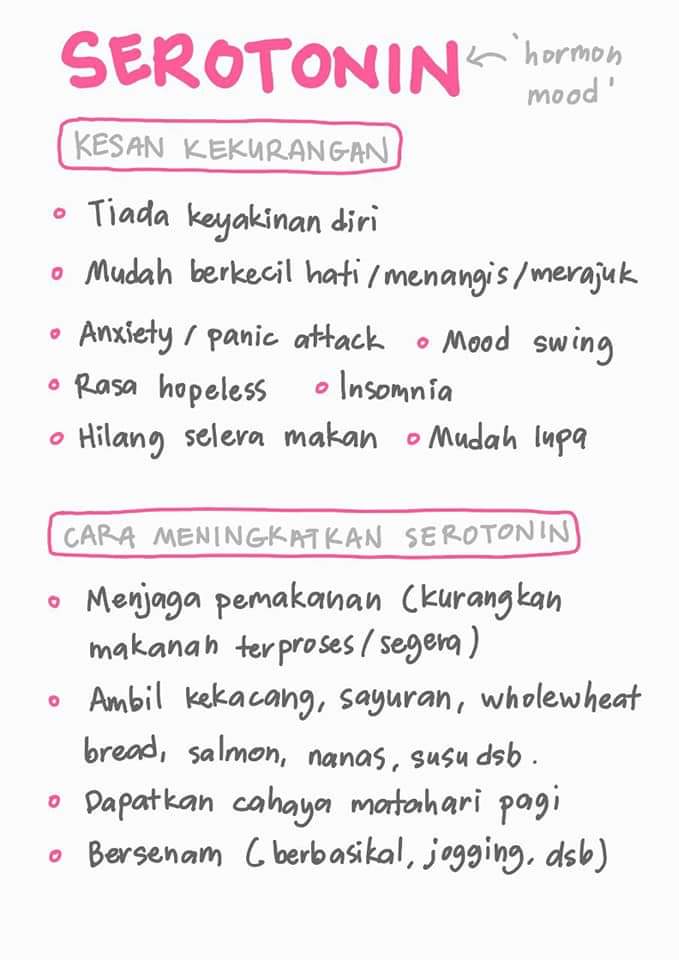 SEROTONIN ← 'hormon
mood'
KESAN KEKURANGAN
• Tiada keyakinan diri
• Mudah berkecil hati/menangis/merajuk
• Anxiety / panic attack • Mood swing
• Rasa hopeless • Insomnia
• Hilang selera makan • Mudah lupa
CARA MENINGKATKAN SEROTONIN
• Menjaga pemakanan (kurangkan
makanah terproses/segera)
• Ambil kekacang, sayuran, wholewheat
bread, salmon, nanas, susu dsb.
• Dapatkan cahaya matahari pagi
• Bersenam (berbasikal, jogging. dsb)